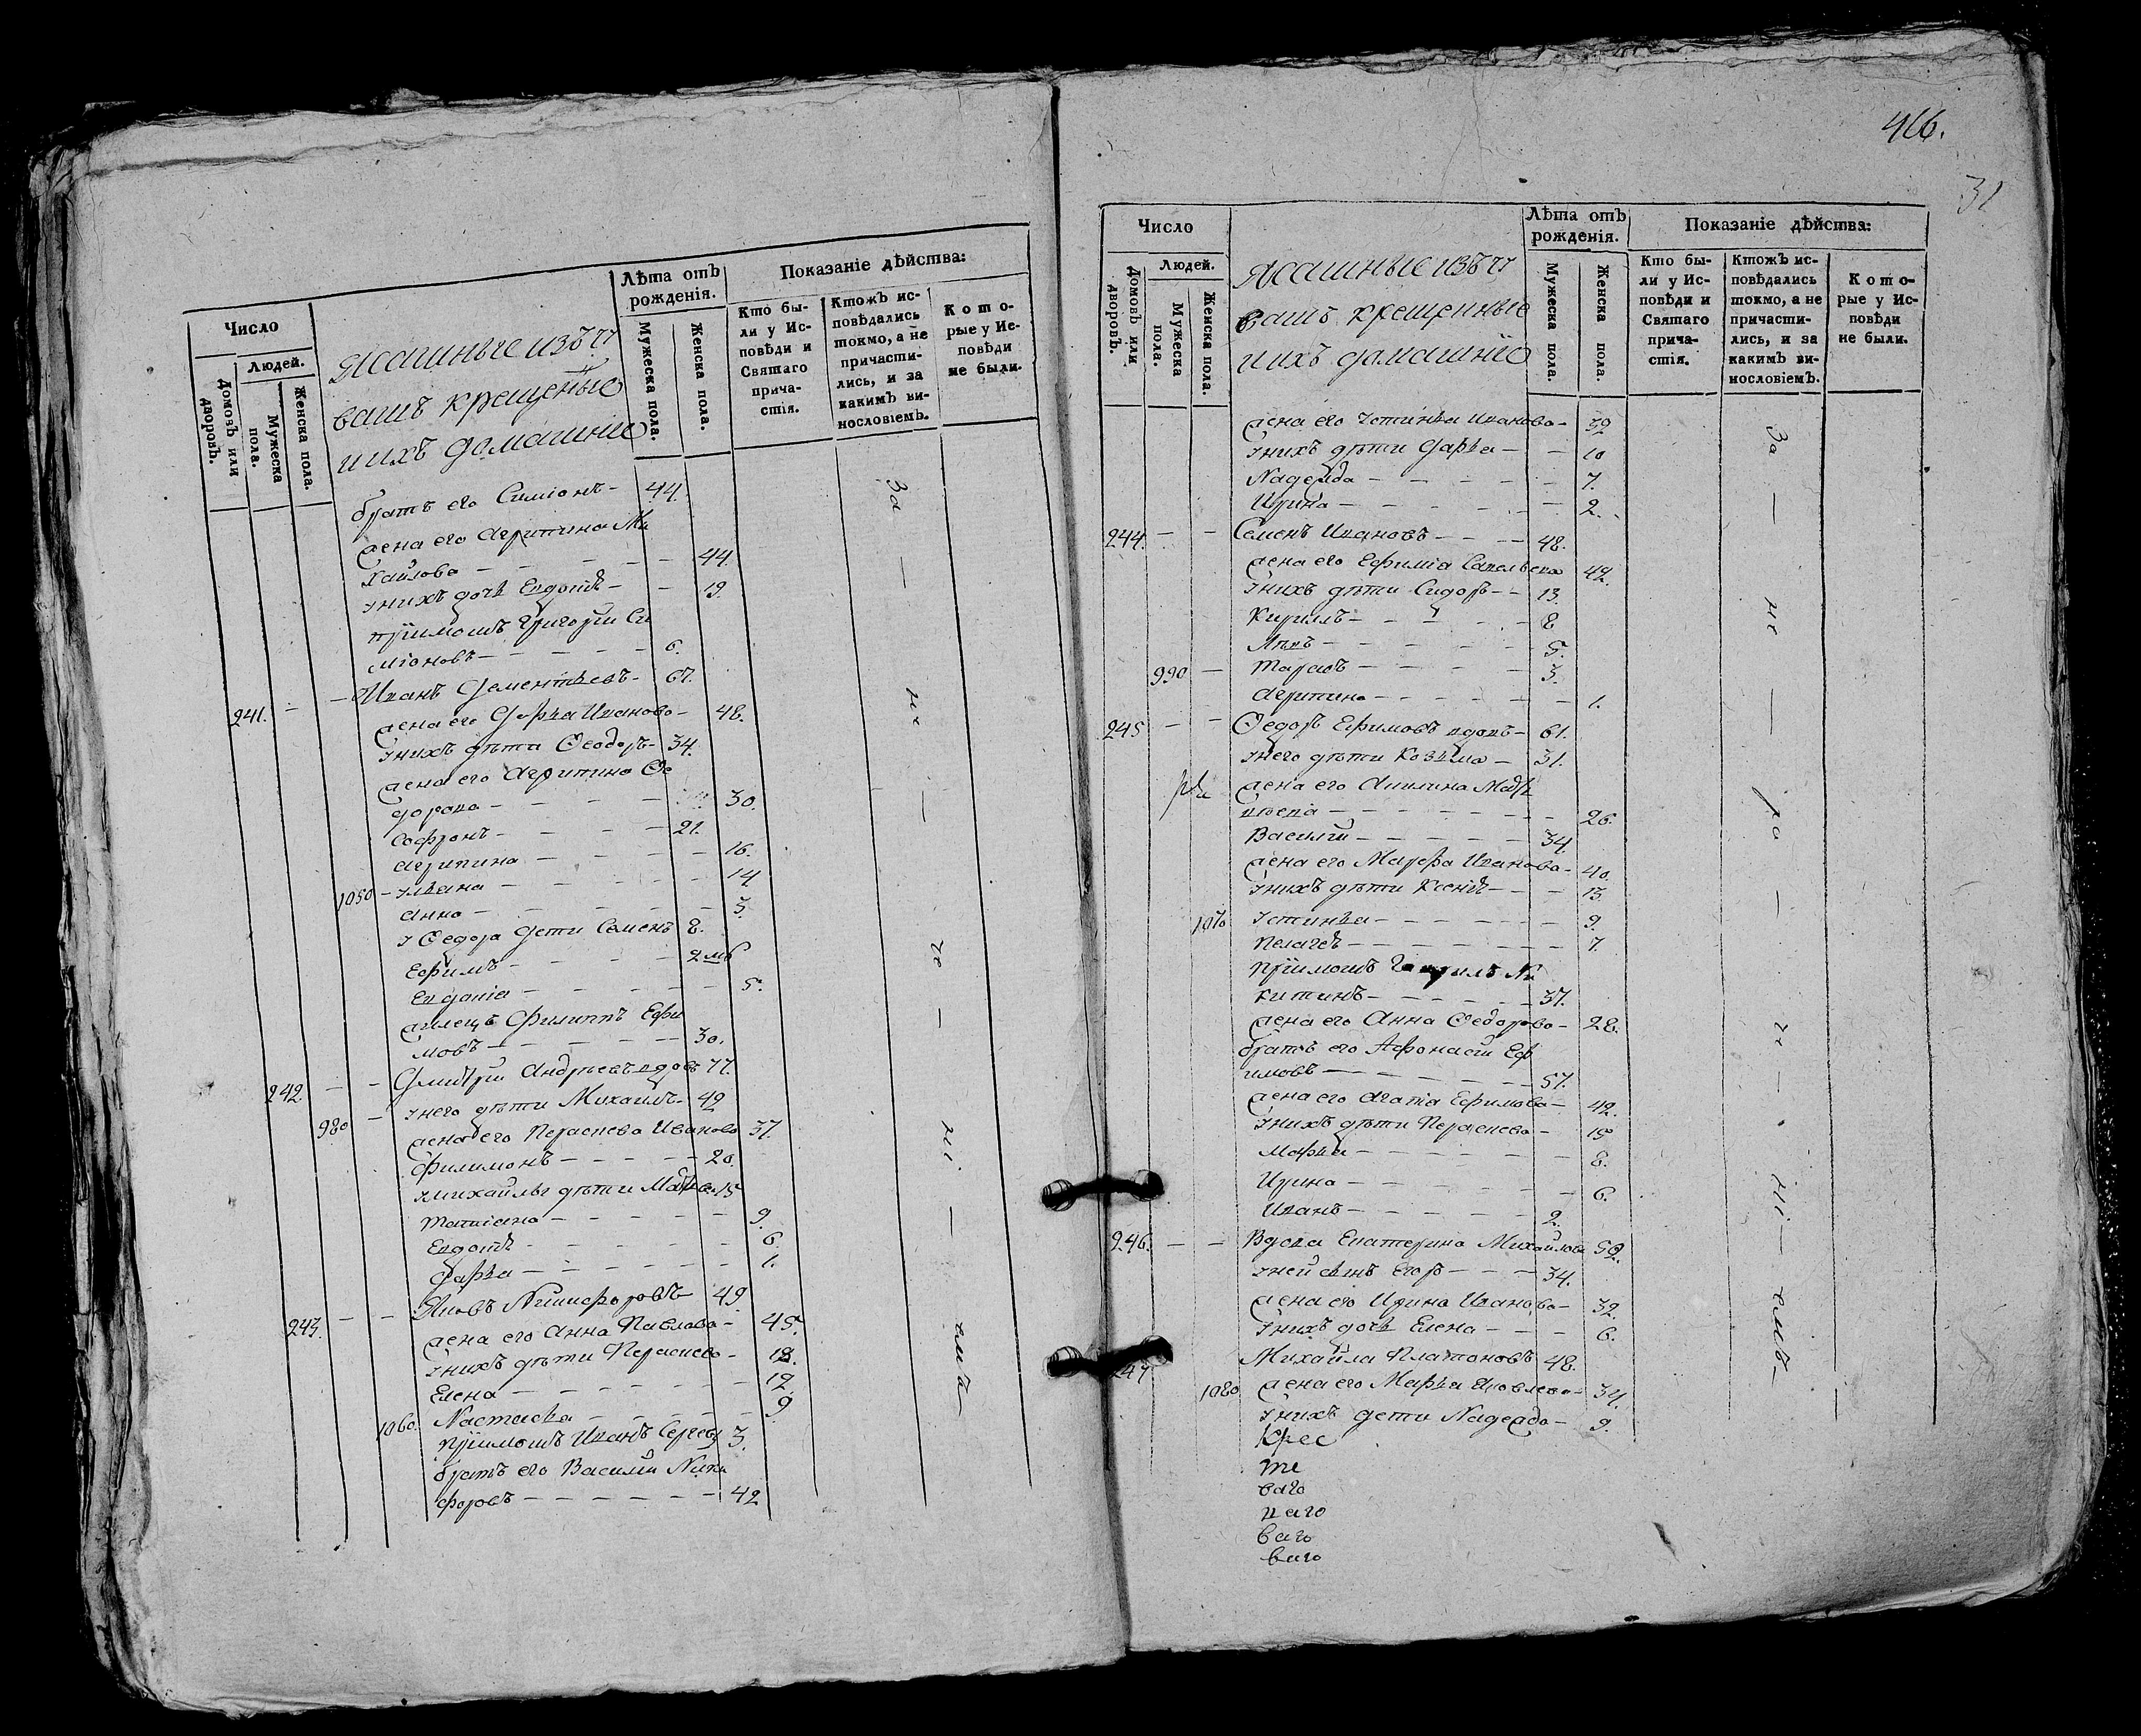 Число
Людей.
Домовъ или дворовъ.
Мужеска пола.
Женска пола.
Ясашные изъ чу
вашъ крещеные
и ихъ домашніе
Лѣта отъ рожденія.
Мужеска пола.
Женска пола.
Показаніе дѣйства:
Кто бы-
ли у Ис-
повѣди и
Святаго
прича-
стія.
Ктожъ ис-
повѣдались
токмо, а не
причасти-
лись, и за
какимъ ви-
нословіемъ.
Кото-
рые у Ис-
повѣди
не были.
братъ его Симіонъ - 44.
жена его Агрипина Ми
хайлова - 44.
у нихъ дочь - 19.
пріимошъ Григорій Си
міоновъ - 6.
241. - - Иванъ Дементьевъ - 67.
жена его Дарья Иванова - 48.
у нихъ дѣти Ѳеодоръ - 34.
жена его Агрипина Ѳе
дорова - 30.
Софронъ - 21.
Агрипина - 16.
1050 - Ульяна - 14
Анна - 3.
у Ѳедора дети Семенъ 8.
Ефимъ - 2 мѣ
Евдокіа - 5.
Филиппъ Ефи
мовъ - 30.
242. - - Дмитрій Андреевъ вдовъ 77.
980 - у него дѣти Михаилъ - 49
жена его Параскева Иванова 37.
Филимонъ - 20.
у Михаилы дѣти 15
Татиана - 9.
6.
Дарья - 1.
243. - - Яковъ Никифоровъ 49.
жена его Анна Павлова - 45.
у нихъ дѣти Параскева - 18.
Елена - 12.
1060. Настасья - 9
пріимошъ Иванъ 3.
братъ его Василій Ники
форовъ - 42
За - не - че - ні - емъ -
416.
31
Число
Людей.
Домовъ или дворовъ.
Мужеска пола.
Женска пола.
Ясашные изъ чу
вашъ крещенные
и ихъ домашніе
Лѣта отъ рожденія.
Мужеска пола.
Женска пола.
Показаніе дѣйства:
Кто бы-
ли у Ис-
повѣди и
Святаго
прича-
стія.
Ктожъ ис-
повѣдались
токмо, а не
причасти-
лись, и за
какимъ ви-
нословіемъ.
Кото-
рые у Ис-
повѣди
не были.
жена его Устинья Иванова - 39
у нихъ дѣти Дарья - 10
Надежда - 7.
Ирина - 2.
244. - - Семенъ Ивановъ - 48.
жена его Ефиміа 49.
у нихъ дѣти Сидоръ - 13.
Кирилъ - 8
5.
990 - Тарасъ - 3.
Агрипина - 1.
245 - - Ѳедоръ Ефимовъ вдовъ - 61.
у него дѣти Козьма - 31.
жена его Акилина
26.
Василій - 34.
жена его Марфа Иванова - 40.
у нихъ дѣти - 13.
1070 Устинья - 9.
7.
пріимошъ Ни
китинъ - 37.
жена его Анна Ѳедорова - 28.
братъ его Афонасій Еф
имовъ - 57.
жена его Агапіа Ефимова - 42.
у нихъ дѣти Параскева - 15
Марья - 8.
Ирина - 6.
Иванъ - 2.
246. - - Вдова Екатерина Михайлова 59.
у ней сынъ Егоръ - 34.
жена его Ирина Иванова - 32.
у нихъ дочь Елена - 6.
247 Михайла Платоновъ 48.
1080 жена его Марья Яковлева - 34.
у нихъ дети Надежда - 9.
Крес
те
ваго
наго
ваго
ваго
За - не - ра - че - ні - емъ -